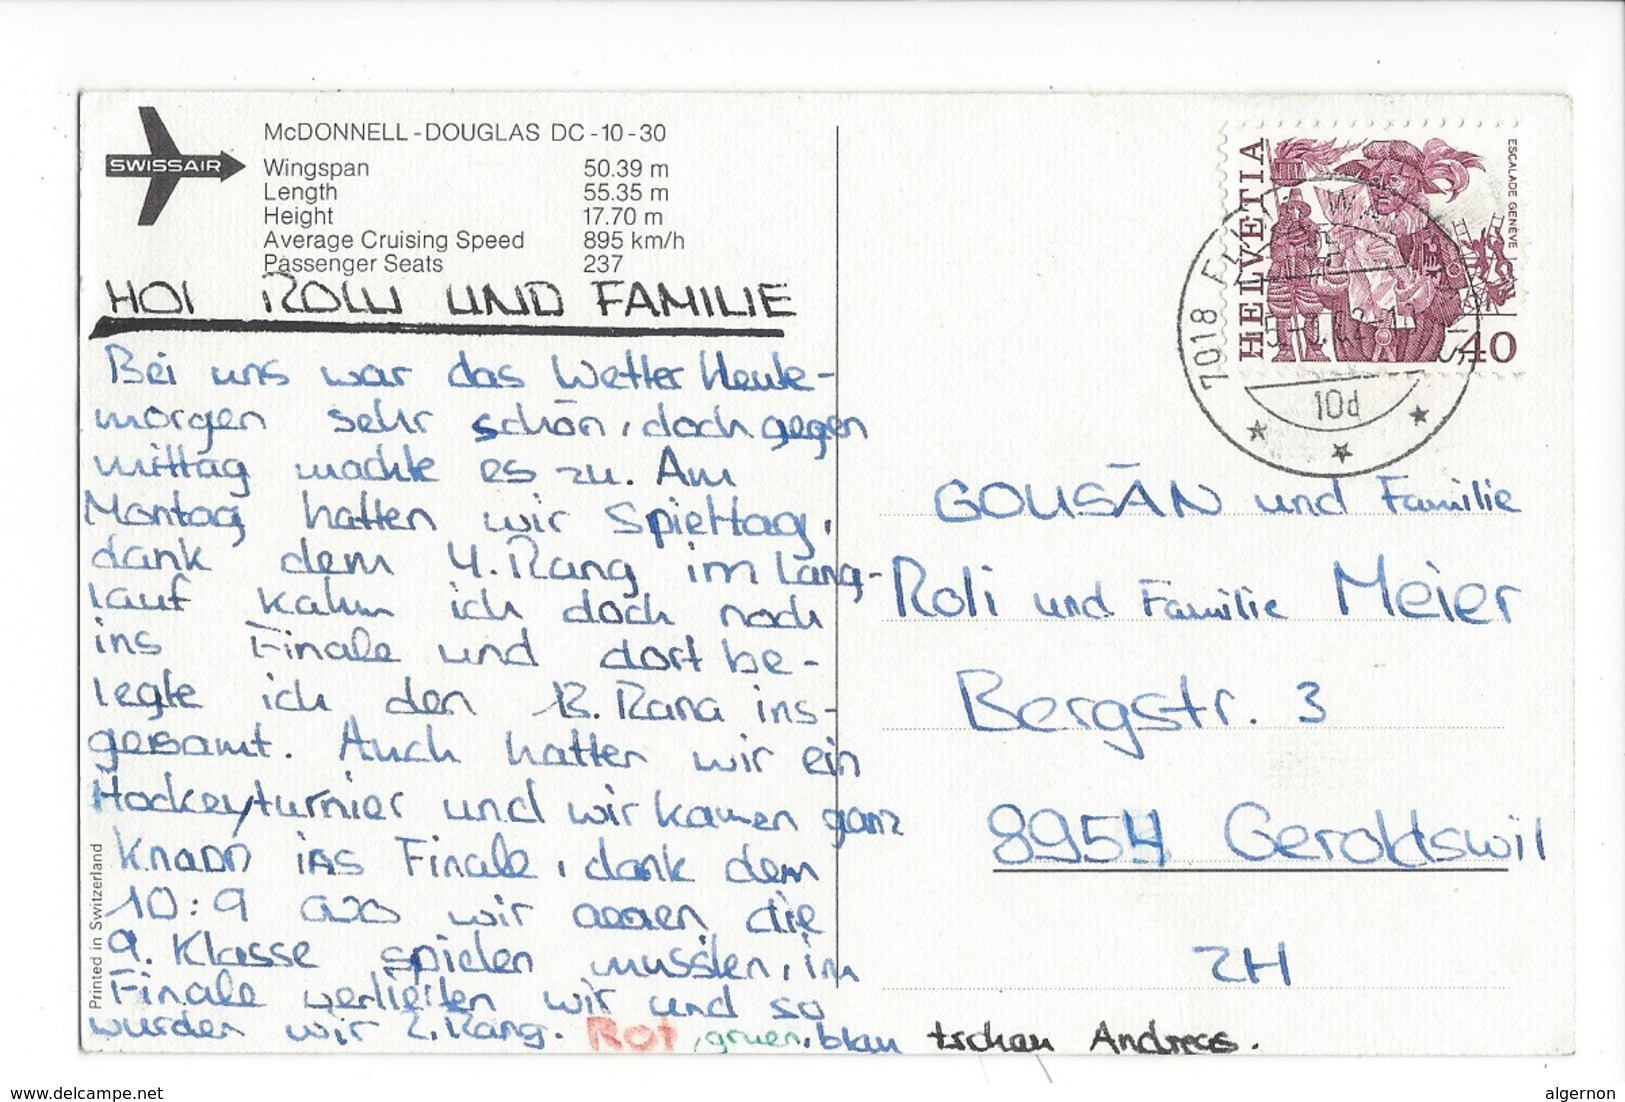 SWISSAIR
McDONNELL - DOUGLAS DC - 10 - 30
Wingspan 50.39 m
Length 55.35 m
Height 17.70 m
Average Cruising Speed 895 km/h
Passenger Seats 237
HOI ROLI UND FAMILIE
Bei uns war das Wetter Heute-
morgen sehr schön, doch gegen
mittag machte es zu. Am
Montag hatten wir Spieltag,
dank dem 4. Rang im Lang-
lauf kahm ich doch noch
ins Finale und dort be-
legte ich den 13. Rang ins-
gesamt. Auch hatten wir ein
Hockeyturnier und wir kamen ganz
knapp ins Finale, dank dem
10:9 wir gegen die
9. Klasse spielen mussten, im
Finale verlieten wir und so
wurden wir 2. Rang. Rot, gruen, blau tschau Andreas.
Printed in Switzerland
HELVETIA
ESCALADE GENÈVE
40
7018 FLIMS WALDHAUS
GOUSĀN und Familie
Roli und Familie Meier
Bergstr. 3
8954 Geroldswil
ZH
delcampe.net
algernon